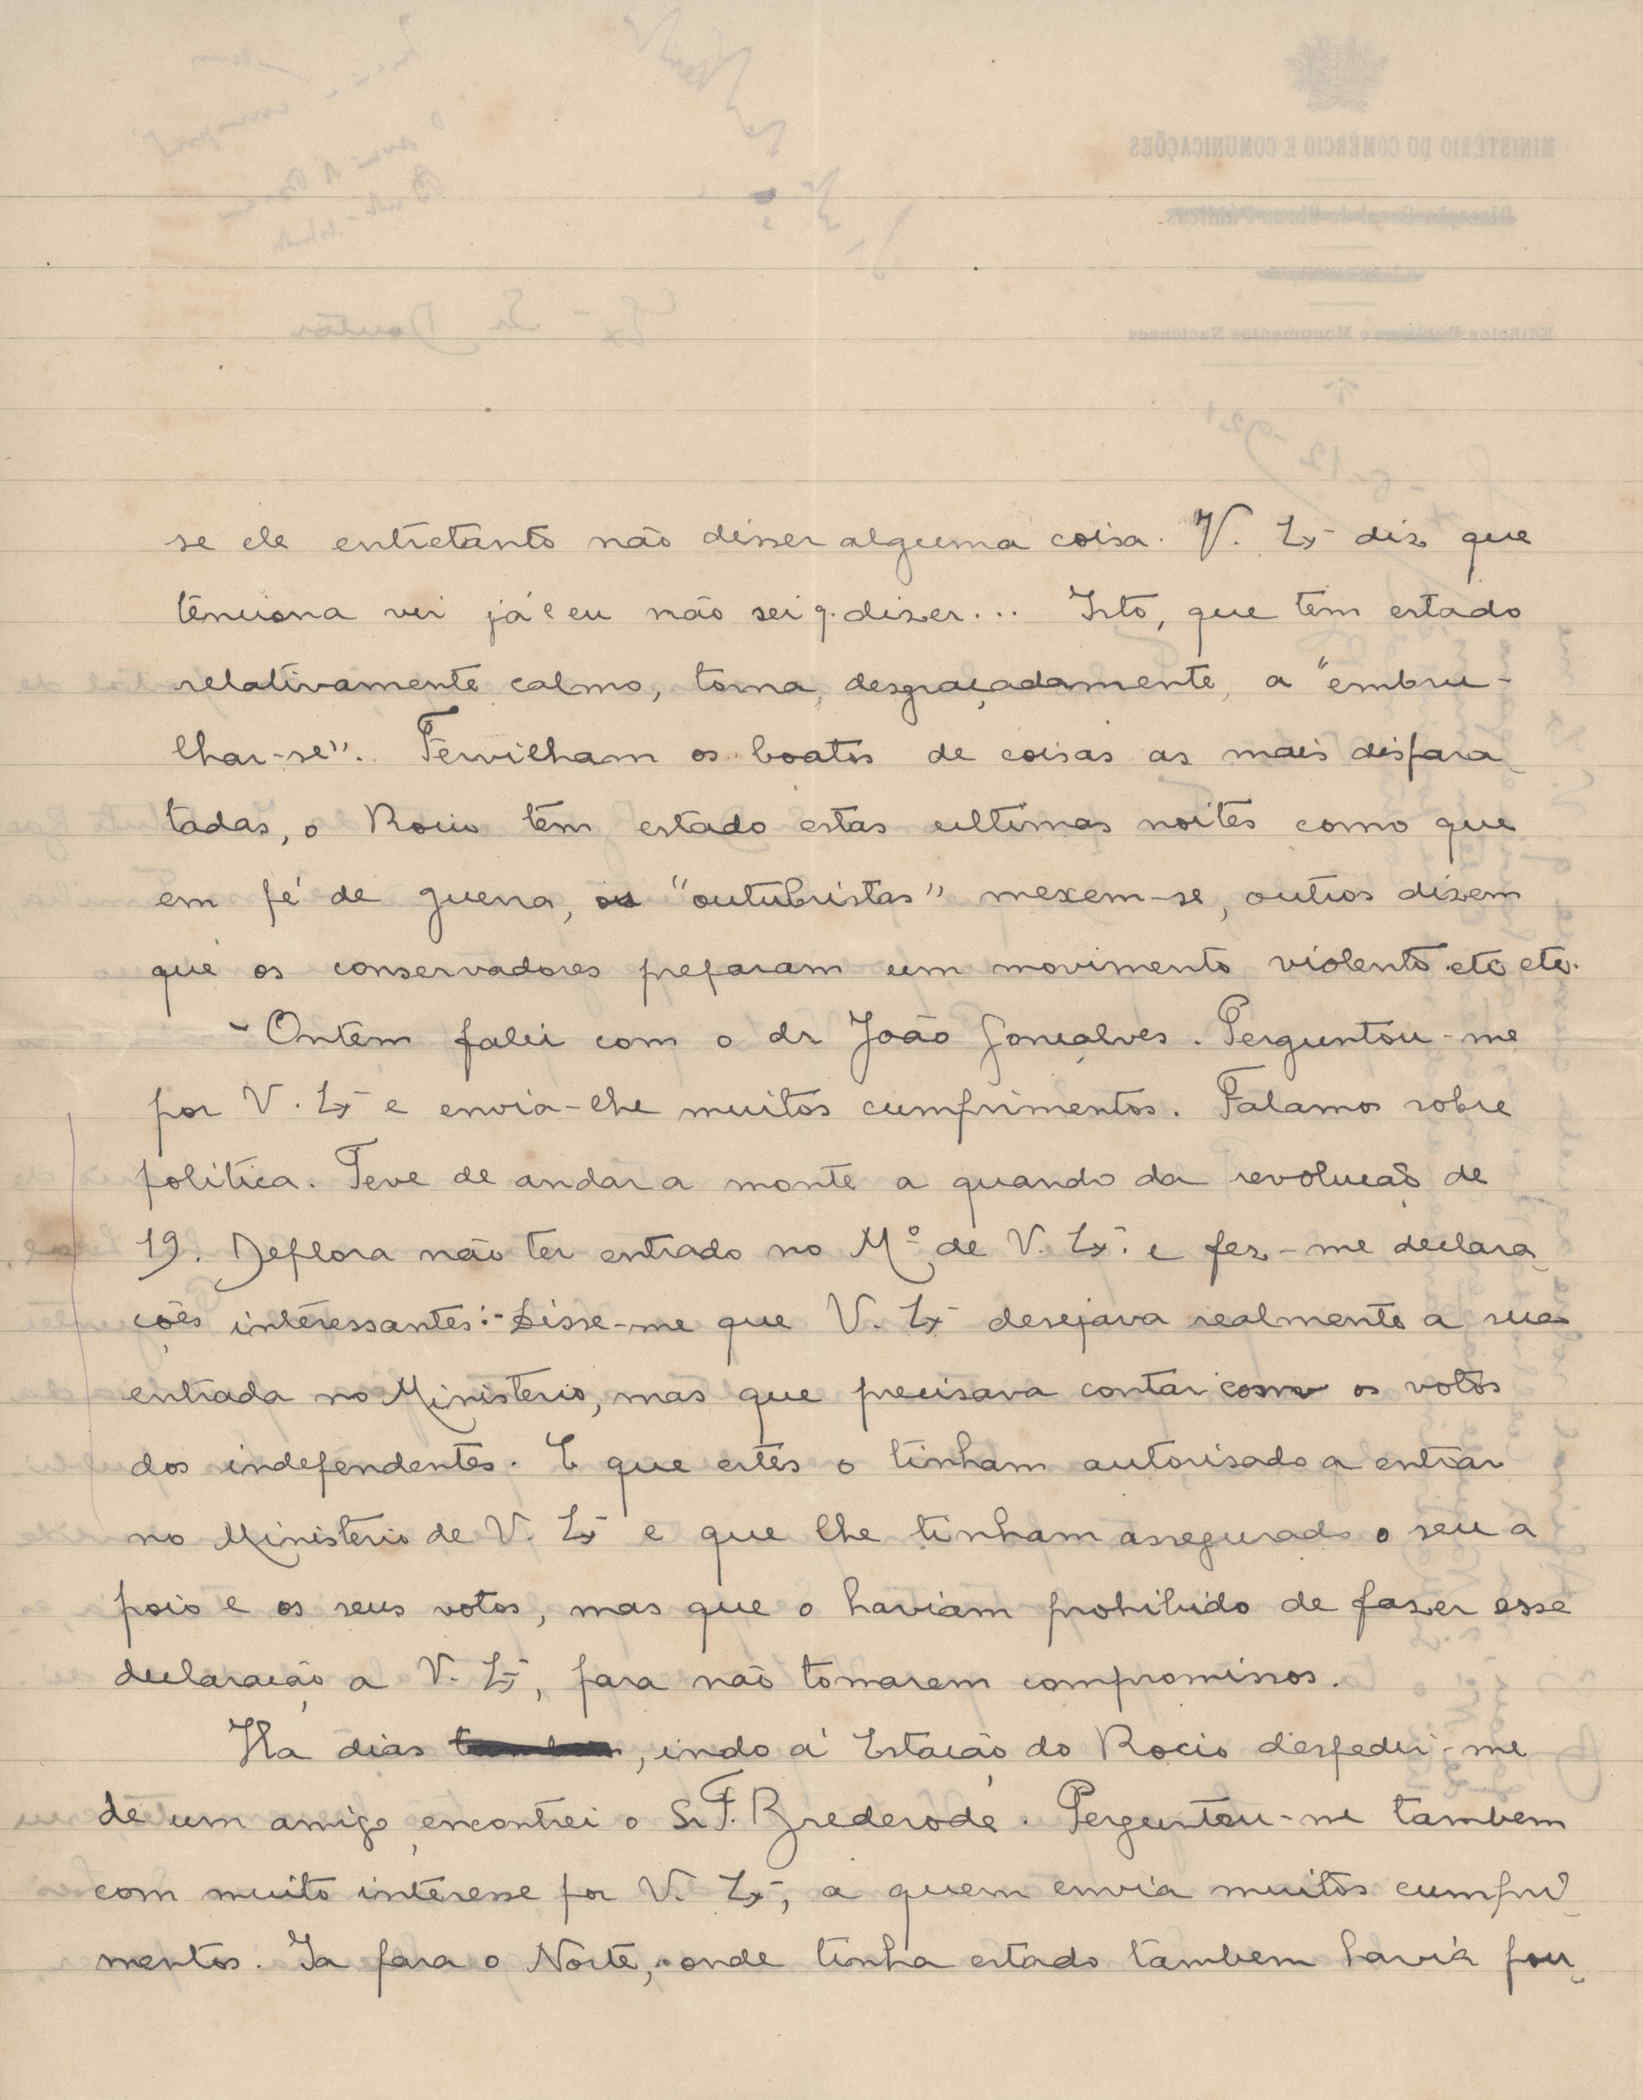 se ele entretanto não disser alguma coisa. V. Ex- diz que
tenciona vir já e eu não sei q. dizer... Isto, que tem estado
relativamente calmo, torna, desgraçadamente, a "embru-
lhar-se". Fervilham os boatos de coisas as mais dispara-
tadas, o Rocio tem estado estas ultimas noites como que
em pé de guerra, os "outubristas" mexem-se, outros dizem
que os conservadores preparam um movimento violento etc etc.
- Ontem falei com o dr João Gonçalves. Perguntou-me
por V. Ex- e envia-lhe muitos cumprimentos. Falamos sobre
politica. Teve de andar a monte a quando da revolução de
19. Deplora não ter entrado no Mº de V. Ex- e fez-me declara-
ções interessantes:- Disse-me que V. Ex- desejava realmente a sua
entrada no Ministerio, mas que precisava contar com os votos
dos independentes. E que estes o tinham autorisado a entrar
no Ministerio de V. Ex- e que lhe tinham assegurado o seu a
poio e os seus votos, mas que o haviam prohibido de fazer esse
declaração a V. Ex-, para não tomarem compromissos.
Ha dias , indo á Estação do Rocio despedir-me
de um amigo, encontrei o Sr F. Brederode. Perguntou-me tambem
com muito interesse por V. Ex-, a quem envia muitos cumpri-
mentos. Ia para o Norte, onde tinha estado tambem havia pou-